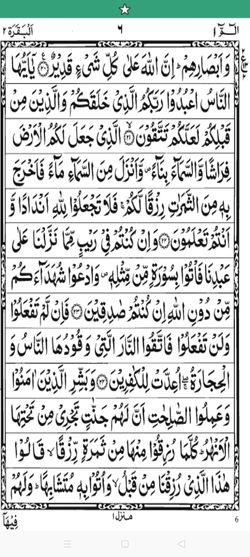 الٓمّٓ ۱ ٦ البقرة ۲
وَاَبْصَارِهِمْ ؕ اِنَّ اللّٰهَ عَلٰى كُلِّ شَیْءٍ قَدِیْرٌ ۟۠ یٰۤاَیُّهَا
النَّاسُ اعْبُدُوْا رَبَّكُمُ الَّذِیْ خَلَقَكُمْ وَالَّذِیْنَ مِنْ
قَبْلِكُمْ لَعَلَّكُمْ تَتَّقُوْنَ ۟ۙ الَّذِیْ جَعَلَ لَكُمُ الْاَرْضَ
فِرَاشًا وَّالسَّمَآءَ بِنَآءً ۪ وَّاَنْزَلَ مِنَ السَّمَآءِ مَآءً فَاَخْرَجَ
بِهٖ مِنَ الثَّمَرٰتِ رِزْقًا لَّكُمْ ۚ فَلَا تَجْعَلُوْا لِلّٰهِ اَنْدَادًا وَّ
اَنْتُمْ تَعْلَمُوْنَ ۟ وَاِنْ كُنْتُمْ فِیْ رَیْبٍ مِّمَّا نَزَّلْنَا عَلٰى
عَبْدِنَا فَاْتُوْا بِسُوْرَةٍ مِّنْ مِّثْلِهٖ ۪ وَادْعُوْا شُهَدَآءَكُمْ
مِّنْ دُوْنِ اللّٰهِ اِنْ كُنْتُمْ صٰدِقِیْنَ ۟ فَاِنْ لَّمْ تَفْعَلُوْا
وَلَنْ تَفْعَلُوْا فَاتَّقُوا النَّارَ الَّتِیْ وَقُوْدُهَا النَّاسُ وَ
الْحِجَارَةُ ۖۚ اُعِدَّتْ لِلْكٰفِرِیْنَ ۟ وَبَشِّرِ الَّذِیْنَ اٰمَنُوْا
وَعَمِلُوا الصّٰلِحٰتِ اَنَّ لَهُمْ جَنّٰتٍ تَجْرِیْ مِنْ تَحْتِهَا
الْاَنْهٰرُ ؕ كُلَّمَا رُزِقُوْا مِنْهَا مِنْ ثَمَرَةٍ رِّزْقًا ۙ قَالُوْا
هٰذَا الَّذِیْ رُزِقْنَا مِنْ قَبْلُ ۙ وَاُتُوْا بِهٖ مُتَشَابِهًا ؕ وَلَهُمْ
منزل ۱ فِیْهَاۤ
6